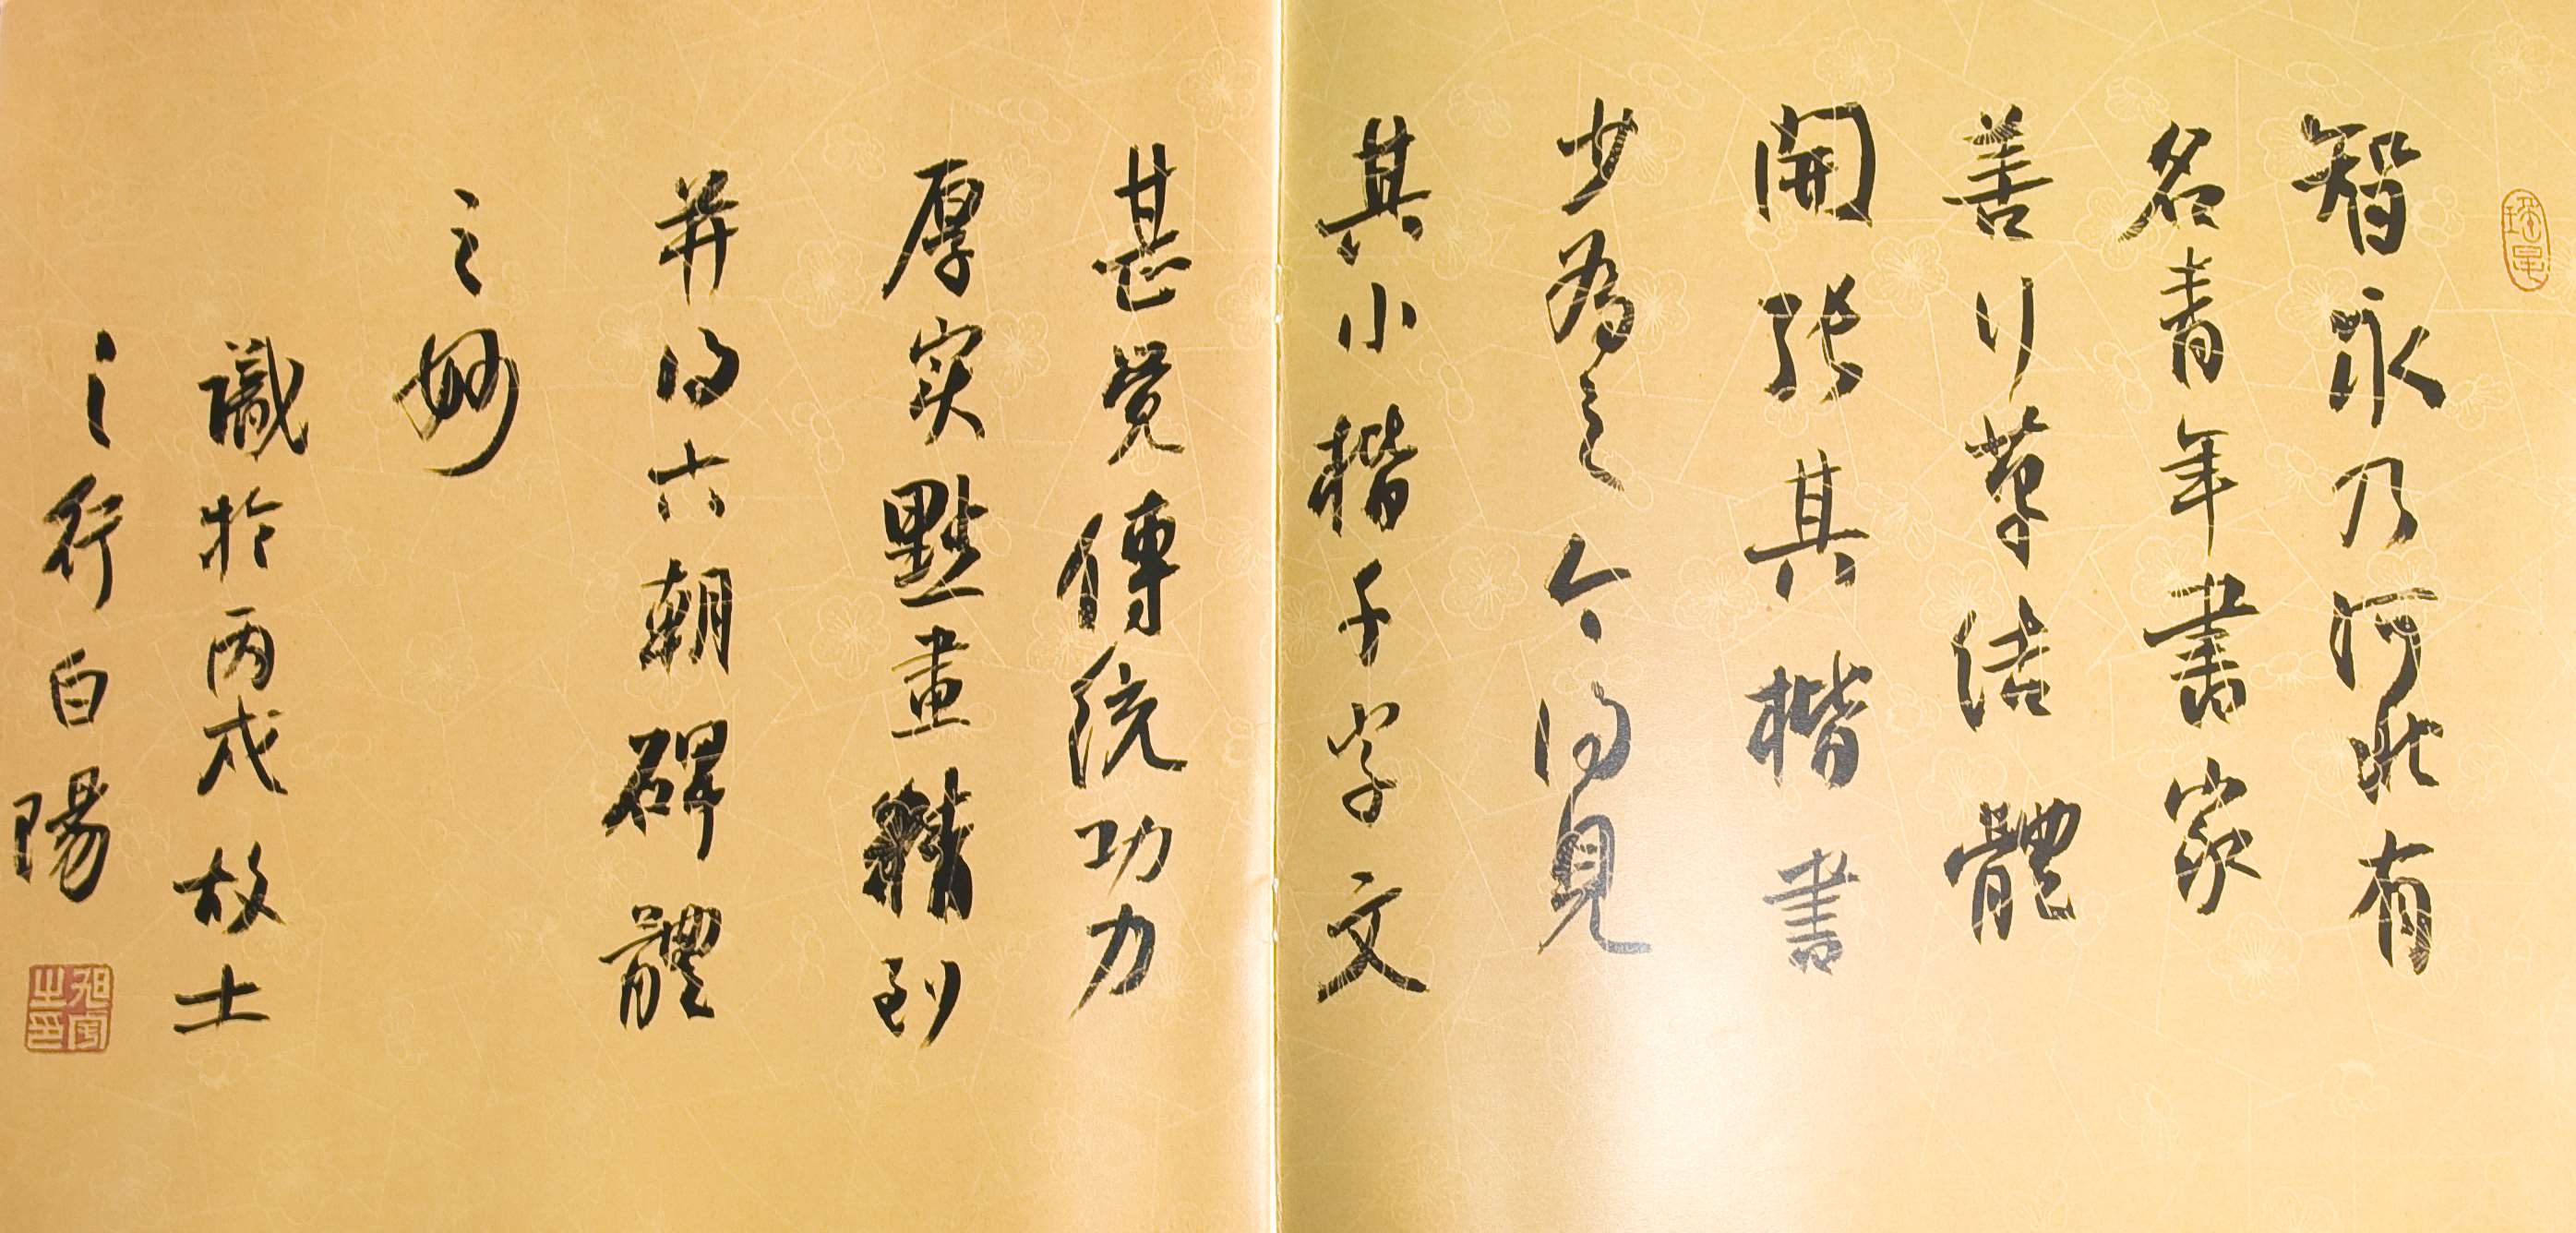 智永乃河北有
名青年書家
善行草结體
開張其楷書
少為之今得見
其小楷千字文
甚覚傳統功力
厚实點畫精到
并得六朝碑體
之妙
識於丙戌故士
之行白陽
旭宇之印